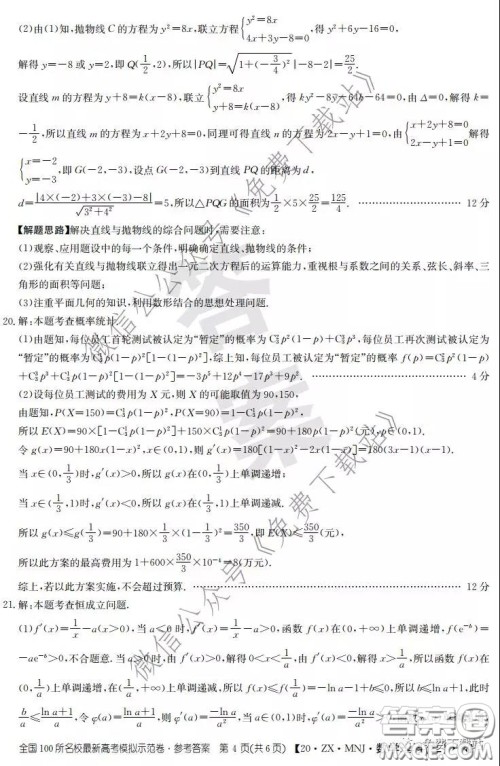 (2)由(1)知,抛物线C的方程为y²=8x,联立方程{y²=8x 4x+3y-8=0,得y²+6y-16=0,
解得y=-8或y=2,即Q(1/2,2),所以|PQ|=√(1+(-3/4)²)|-8-2|=25/2.
设直线m的方程为y+8=k(x-8),联立{y²=8x y+8=k(x-8),得ky²-8y-64k-64=0,由Δ=0,解得k=
-1/2,所以直线m的方程为x+2y+8=0,同理可得直线n的方程为2x-y+1=0,由{x+2y+8=0 2x-y+1=0解得
{x=-2 y=-3,即G(-2,-3),设点G(-2,-3)到直线PQ的距离为d,
d=|4×(-2)+3×(-3)-8|/√(3²+4²)=5,所以△PQG的面积为1/2×5×25/2=125/4. 12分
【解题思路】解决直线与抛物线的综合问题时,需要注意:
(1)观察、应用题设中的每一个条件,明确确定直线、抛物线的条件;
(2)强化有关直线与抛物线联立得出一元二次方程后的运算能力,重视根与系数之间的关系、弦长、斜率、三
角形的面积等问题;
(3)注重平面几何的知识,利用数形结合的思想处理问题.
20.解:本题考查概率统计.
(1)由题知,每位员工首轮测试被认定为“暂定”的概率为C₃²p²(1-p)+C₃³p³,每位员工再次测试被认定为
“暂定”的概率为C₃¹p(1-p)²[1-(1-p)²],综上知,每位员工被认定为“暂定”的概率f(p)=C₃²p²(1-p)
+C₃³p³+C₃¹p(1-p)²[1-(1-p)²]=-3p⁵+12p⁴-17p³+9p². 4分
(2)设每位员工测试的费用为X元,则X的可能取值为90,150,
由题知,P(X=150)=C₃¹p(1-p)²,P(X=90)=1-C₃¹p(1-p)²,
所以E(X)=90×[1-C₃¹p(1-p)²]+150×C₃¹p(1-p)²=90+180p(1-p)²(元),p∈(0,1).
令g(x)=90+180x(1-x)²,x∈(0,1),则g'(x)=180[(1-x)²-2x(1-x)]=180(3x-1)(x-1).
当x∈(0,1/3)时,g'(x)>0,所以g(x)在(0,1/3)上单调递增;
当x∈(1/3,1)时,g'(x)<0,所以g(x)在(1/3,1)上单调递减.
所以g(x)≤g(1/3)=90+180×1/3×(1-1/3)²=350/3,即E(X)≤350/3(元),
所以此方案的最高费用为1+600×350/3×10⁻⁴=8(万元).
综上,若以此方案实施,不会超过预算. 12分
21.解:本题考查恒成立问题.
(1)f'(x)=1/x-a(x>0),当a<0时,f'(x)=1/x-a>0,函数f(x)在(0,+∞)上单调递增,
不合题意.当a>0时,由f'(x)>0,解得0<x<1/a,由f'(x)<0,解得x>1/a,所以函数f(x)在
(0,1/a)上单调递增,在(1/a,+∞)上单调递减,
全国100所名校最新高考模拟示范卷·参考答案 第4页(共6页) 【20·ZX·MNJ·数学
微信公众号《免费下载站》
微信公众号《免费下载站》
答案